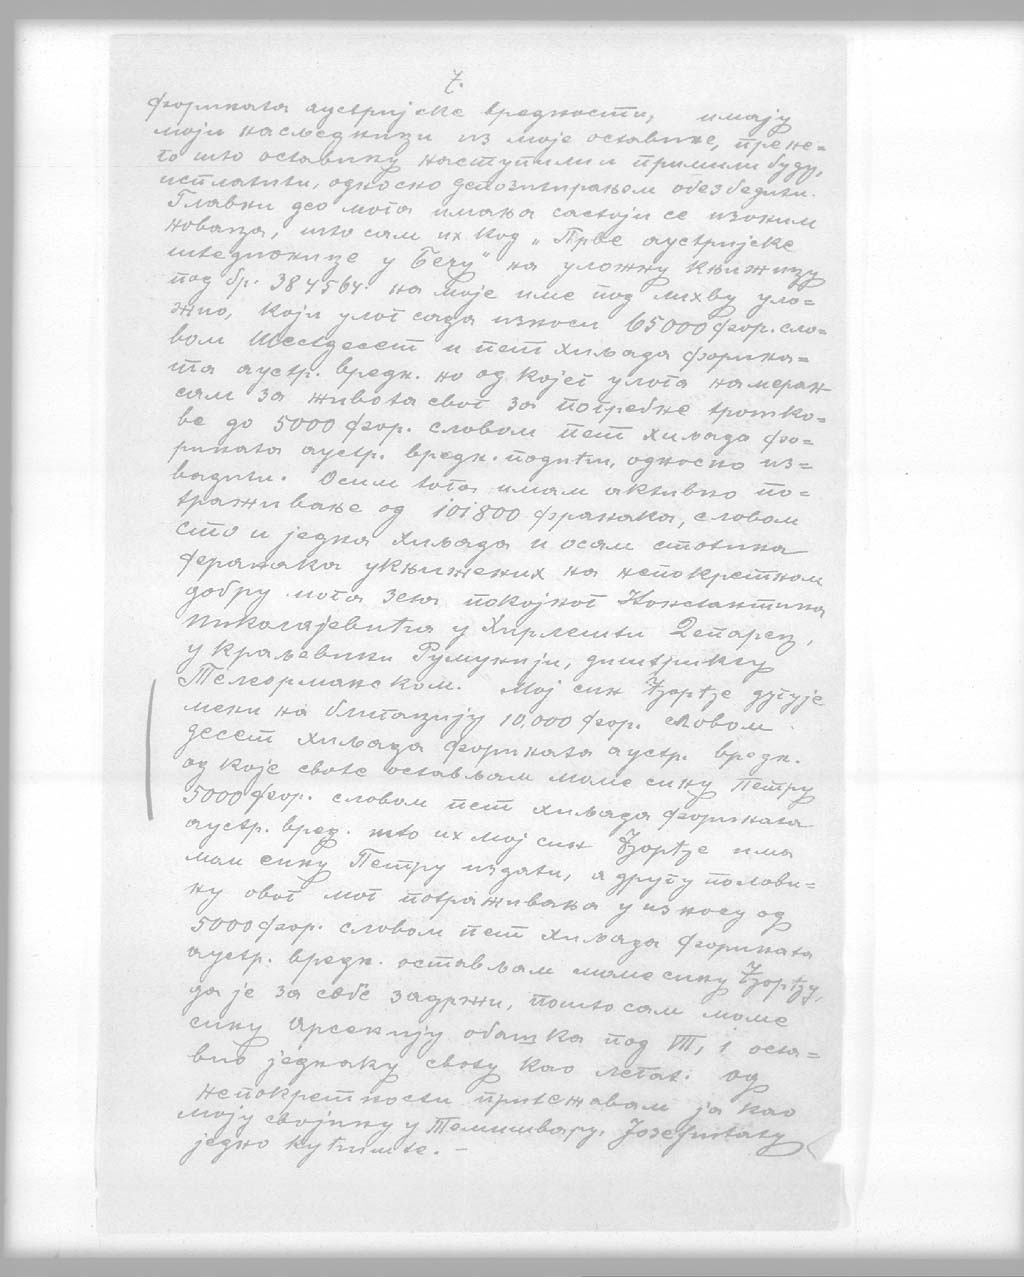 7.
форината аустријске вредности, имају
моји наследници из моје оставине, прене=
го што оставину наступили и примили буду,
исплатити, односно депозитирањем обезбедити.
Главни део мога имања састоји се из оних
новаца, што сам их код „Прве аустријске
штедионице у Бечу" на уложну књижицу
под бр. 384564 на моје име под лихву уло=
жио, који улог сада износи 65000 фор. сло=
вом Шесдесет и пет хиљада форина=
та аустр. вредн. но од којег улога намеран
сам за живота свог за потребне трошко=
ве до 5000 фор. словом пет хиљада фо=
рината аустр. вредн. подићи, односно из=
вадити. Осим тога имам активно по=
траживање од 101800 франака, словом
сто и једна хиљада и осам стотина
франака укњижених на непокретном
добру мога зета покојног Константина
Николајевића у Хирлешти Депарец,
у краљевини Румунији, дистрикту
Телеорманском. Мој син Ђорђе дугује
мени на облигацију 10,000 фор. словом
десет хиљада форината аустр. вредн.
од које своте остављам моме сину Петру
5000 фор. словом пет хиљада форината
аустр. вред. што их мој син Ђорђе има
мом сину Петру издати, а другу полови=
ну овог мог потраживања у износу од
5000 фор. словом пет хиљада форината
аустр. вредн. остављам моме сину Ђорђу,
да је за себе задржи, пошто сам моме
сину Арсенију обашка под VII, 1 оста=
вио једнаку своту као легат. од
непокретности притежавам ја као
моју својину у Темишвару, Josefstadt
једно кућиште. –